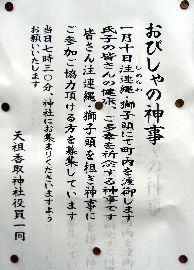 おびしゃの神事
一月十日注連縄・獅子頭にて町内を渡御します
氏子の皆さんの健康、ご多幸を祈念する神事です
皆さん注連縄、獅子頭を担ぎ神事に
ご参加ご協力頂ける方を募集しています
当日七時三〇分、神社にお集まりくださいますよう
お願いいたします
天祖香取神社役員一同